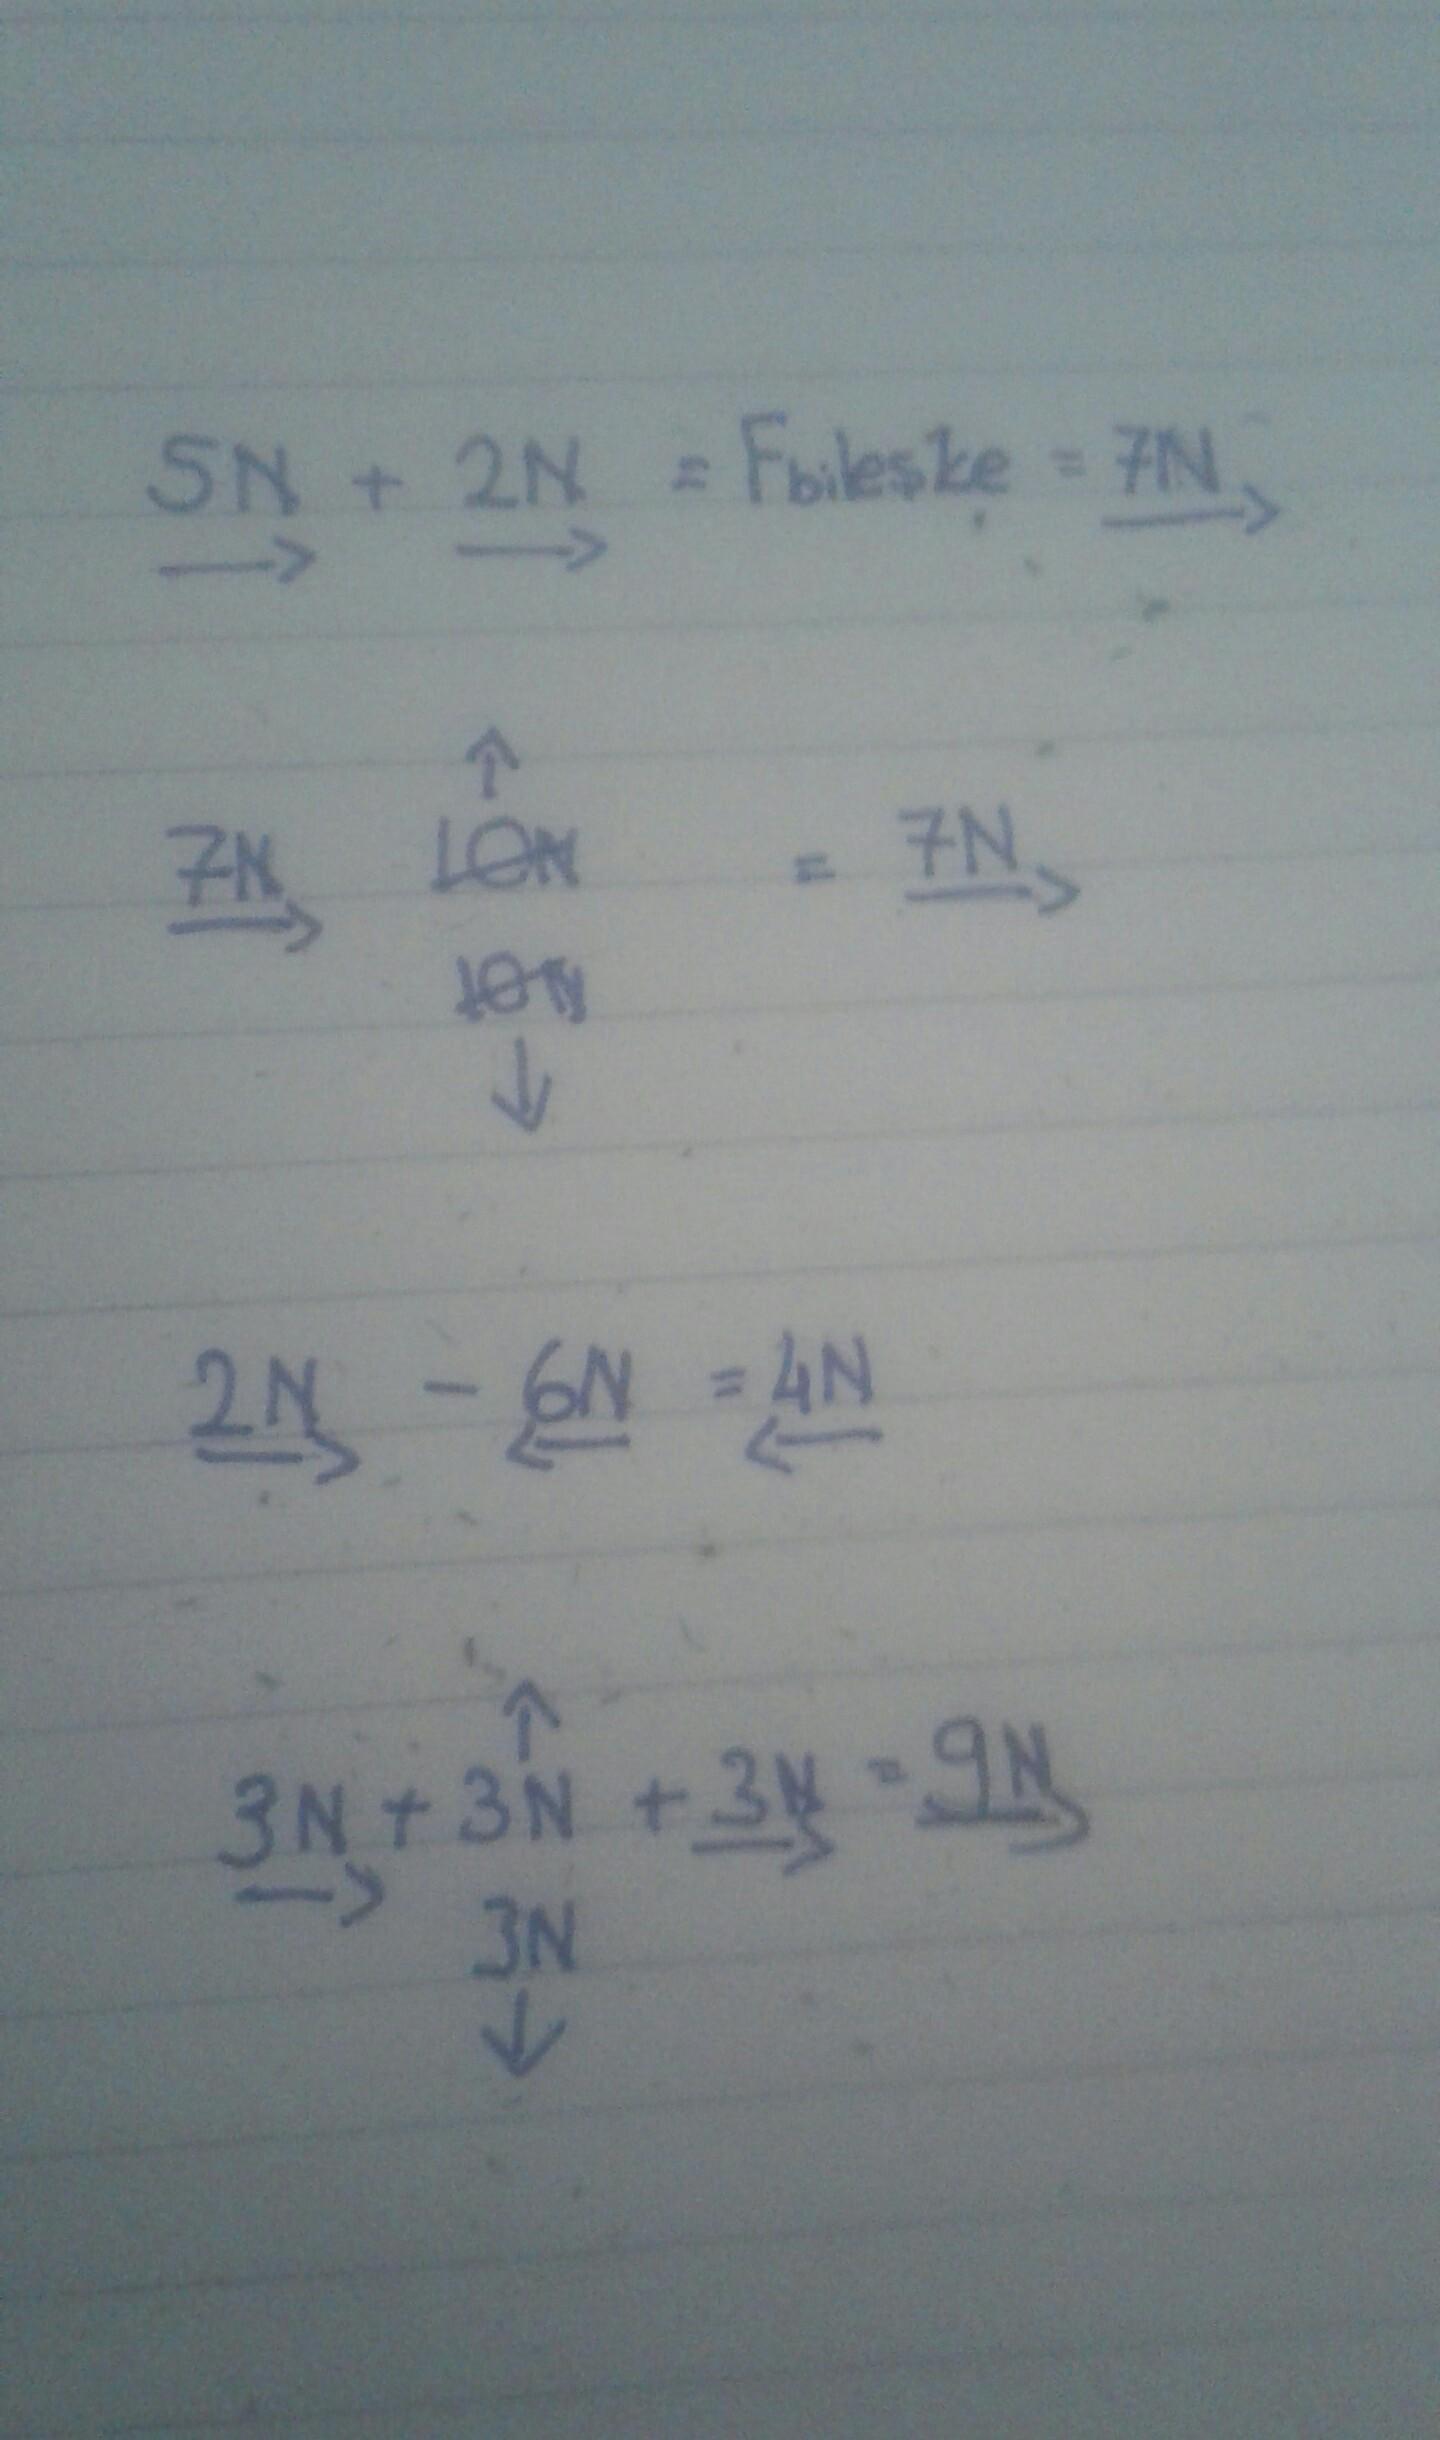 5N + 2N = Fbileşke = 7N
→ → →
↑
7N 10N = 7N
→ →
10N
↓
2N - 6N = 4N
→ ← ←
↑
3N + 3N + 3N = 9N
→ → →
3N
↓